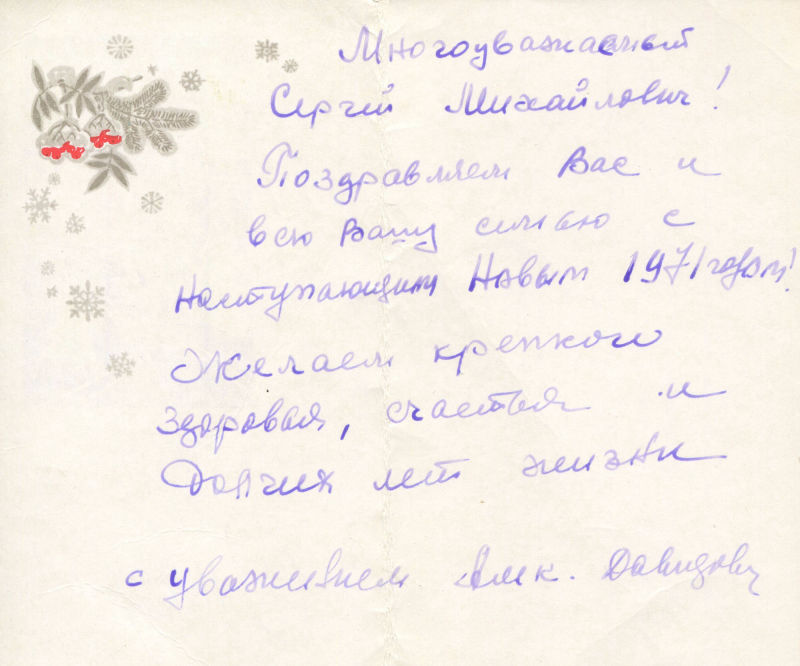 Многоуважаемый
Сергей Михайлович!
Поздравляем Вас и
всю Вашу семью с
наступающим Новым 1971 годом!
Желаем крепкого
здоровья, счастья и
долгих лет жизни
с уважением